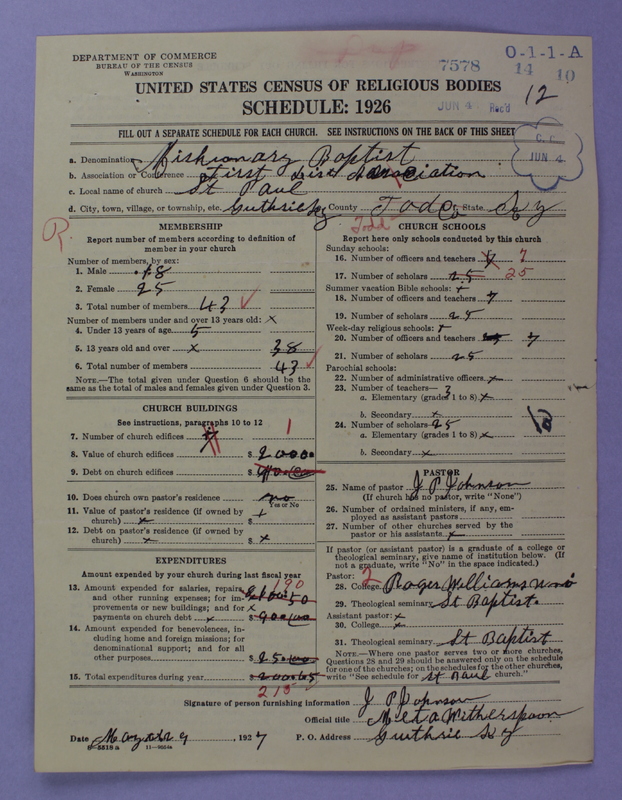 DEPARTMENT OF COMMERCE
BUREAU OF THE CENSUS
WASHINGTON
7578
O-1-1-A
14 10
UNITED STATES CENSUS OF RELIGIOUS BODIES
SCHEDULE: 1926
JUN 4 Rec'd
12
FILL OUT A SEPARATE SCHEDULE FOR EACH CHURCH. SEE INSTRUCTIONS ON THE BACK OF THIS SHEET
C. C.
JUN 4
a. Denomination Missionary Baptist
b. Association or Conference First Dist Association
c. Local name of church St Paul
d. City, town, village, or township, etc. Guthrie Ky County Todd Co. State Ky
Todd
R.
MEMBERSHIP
Report number of members according to definition of
member in your church
Number of members, by sex:
1. Male 18
2. Female 25
3. Total number of members 43
Number of members under and over 13 years old: x
4. Under 13 years of age 5
5. 13 years old and over x 38
6. Total number of members 43
NOTE.—The total given under Question 6 should be the
same as the total of males and females given under Question 3.
CHURCH BUILDINGS
See instructions, paragraphs 10 to 12
7. Number of church edifices 1
8. Value of church edifices $ 2000
9. Debt on church edifices $
10. Does church own pastor's residence no
Yes or No
11. Value of pastor's residence (if owned by
church) x $
12. Debt on pastor's residence (if owned by
church) x $ x
EXPENDITURES
Amount expended by your church during last fiscal year
13. Amount expended for salaries, repairs,
and other running expenses; for im-
provements or new buildings; and for x
payments on church debt x
190
14. Amount expended for benevolences, in-
cluding home and foreign missions; for
denominational support; and for all
other purposes $ 25.00
15. Total expenditures during year $
215
CHURCH SCHOOLS
Report here only schools conducted by this church
Sunday schools:
16. Number of officers and teachers 7
17. Number of scholars 25 25
Summer vacation Bible schools: x
18. Number of officers and teachers 7
19. Number of scholars 25
Week-day religious schools: x
20. Number of officers and teachers 7
21. Number of scholars 25
Parochial schools:
22. Number of administrative officers x
23. Number of teachers— 3
a. Elementary (grades 1 to 8) x
b. Secondary x
24. Number of scholars— 25
a. Elementary (grades 1 to 8) x
b. Secondary x
PASTOR
25. Name of pastor J P Johnson
(If church has no pastor, write "None")
26. Number of ordained ministers, if any, em-
ployed as assistant pastors
27. Number of other churches served by the
pastor or his assistants x
If pastor (or assistant pastor) is a graduate of a college or
theological seminary, give name of institution below. (If
not a graduate, write "No" in the space indicated.)
Pastor: 2
28. College Roger Williams
29. Theological seminary St Baptist.
Assistant pastor: x
30. College x
31. Theological seminary St Baptist
NOTE.—Where one pastor serves two or more churches,
Questions 28 and 29 should be answered only on the schedule
for one of the churches; on the schedules for the other churches,
write "See schedule for St Paul church."
Signature of person furnishing information J P Johnson
Official title Meta Witherspoon
Date May 29, 1927 P. O. Address Guthrie Ky
8-5518 a 11-9664a